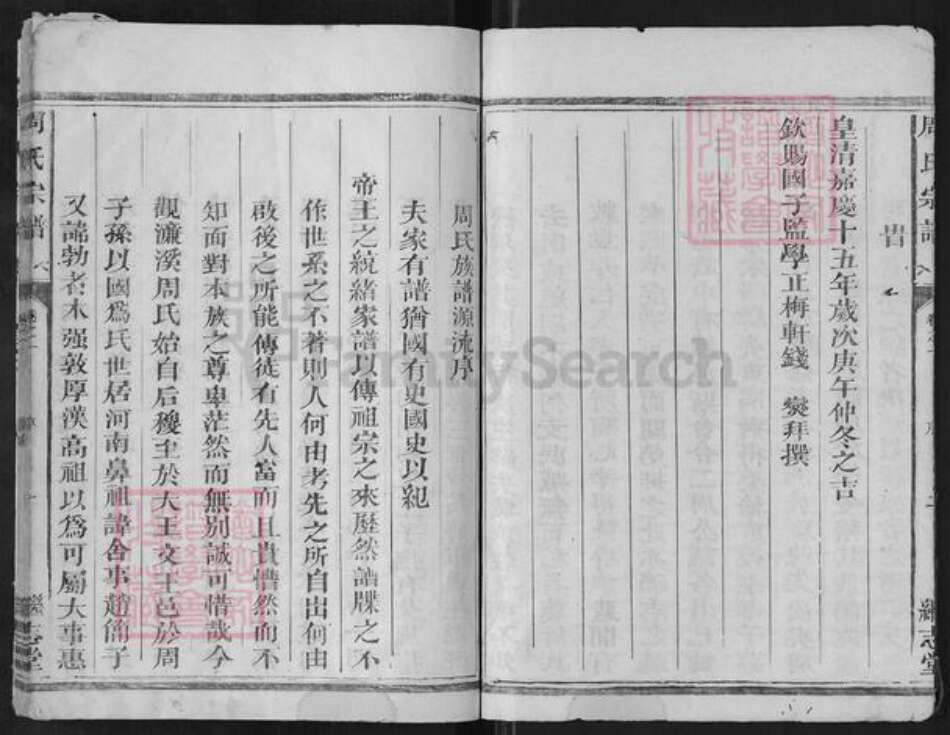 周氏宗譜
卷之一
序
繼志堂
昔
皇清嘉慶十五年歲次庚午仲冬之吉
欽賜國子監學正梅軒錢 燮拜撰
周氏族譜源流序
夫家有譜猶國有史國史以紀
帝王之統緒家譜以傳祖宗之來歷然譜牒之不
作世系之不著則人何由考先之所自出何由
啟後之所能傳徒有先人富而且貴懵然而不
知面對本族之尊卑茫然而無別誠可惜哉今
觀濂溪周氏始自后稷至於大王文王邑於周
子孫以國為氏世居河南鼻祖諱舍事趙簡子
又諱勃者木强敦厚漢高祖以為可屬大事惠
周氏宗譜
卷之一
序
繼志堂
FamilySearch